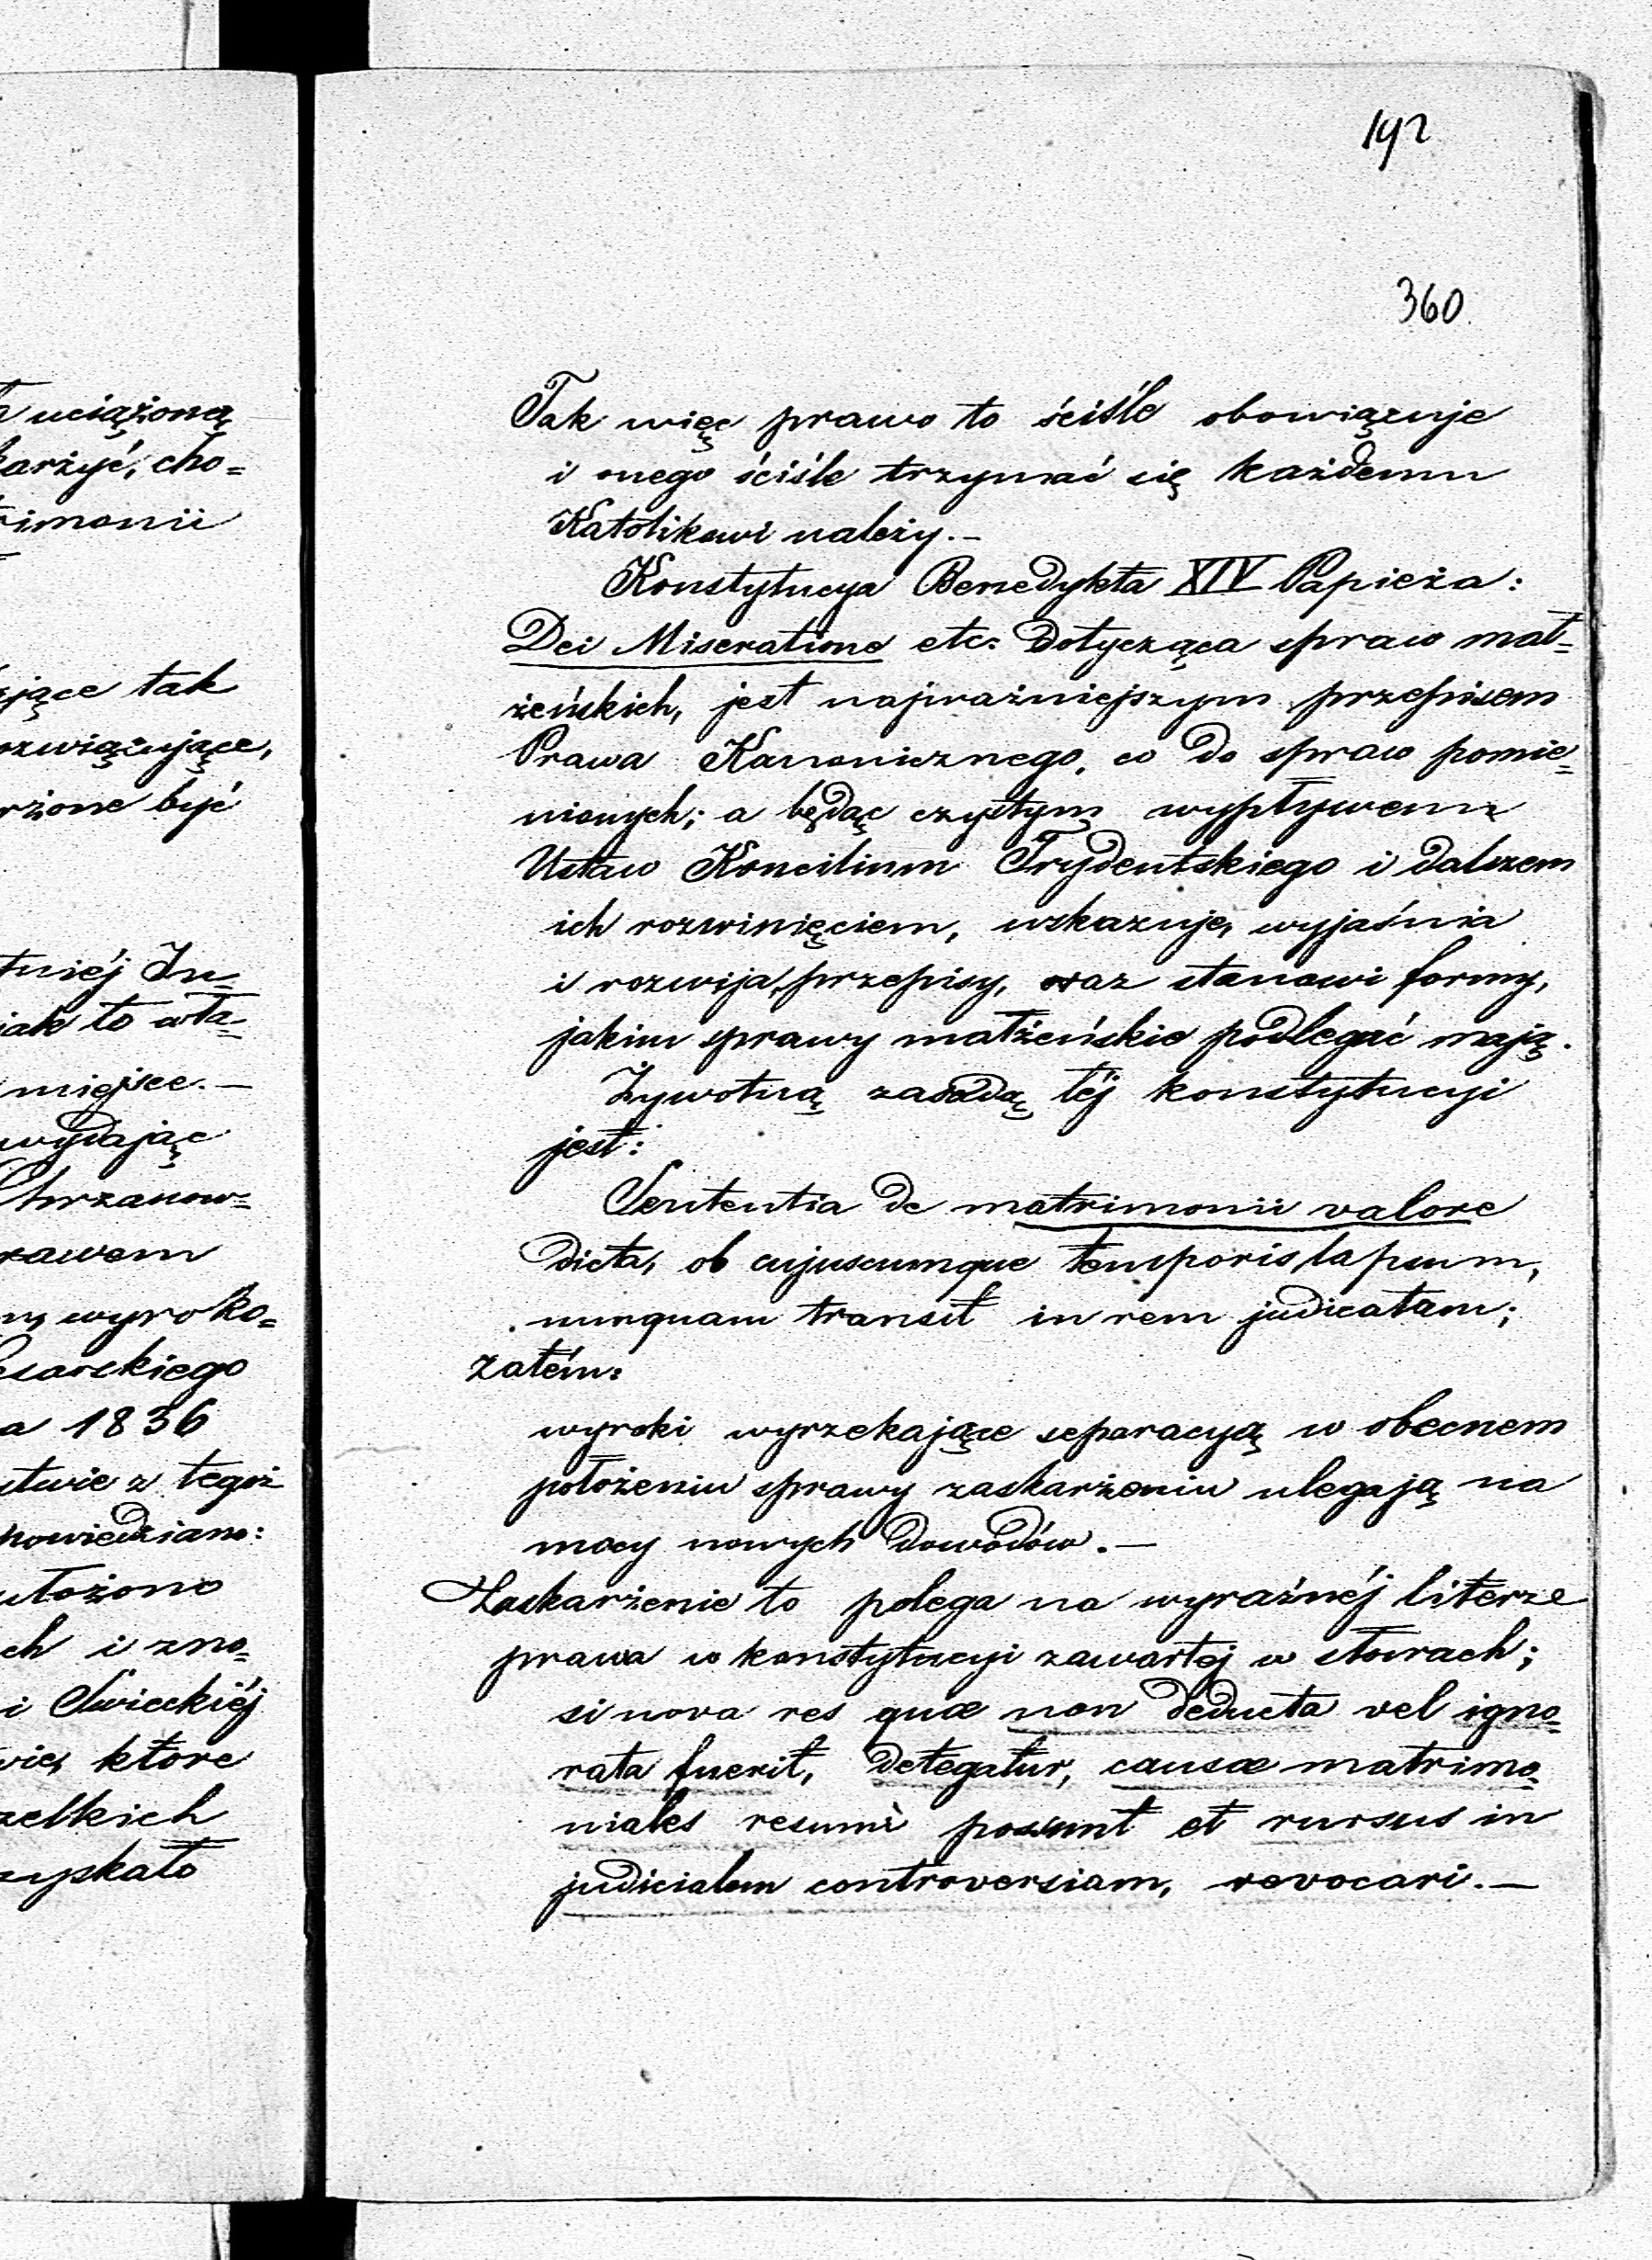 a uciążoną
karżyć, cho=
rimonii
jące tak
ozwiązujące,
rżone być
tniéj In=
jak to wła=
miejsce.—
wydając
Chrzanow=
rawem
wyroko=
esarskiego
a 1836
stwie z tegoż
powiedziano:
ułożono
ch i zno=
i Swieckiéj
które
zelkich
zyskało
192
360.
Tak więc prawo to ściśle obowiązuje
i onego ściśle trzymać się każdemu
Katolikowi należy.—
Konstytucya Benedykta XIV Papieża:
Dei Miseratione etc: dotycząca spraw mał=
żeńskich, jest najważniejszym przepisem
Prawa Kanonicznego, co do spraw pomie=
nionych; a będąc czystym wypływem
Ustaw Koncilium Trydentskiego i dalszem
ich rozwinięciem, wskazuje, wyjaśnia
i rozwija, przepisy, oraz stanowi formy,
jakim sprawy małżeńskie podlegać mają.
Żywotną zasadą téj konstytucyi
jest:
Sententia de matrimonii valore
dicta, ob cujuscumque temporis lapsum,
nunquam transit in rem judicatam;
zatém:
wyroki wyrzekające separacyą w obecnem
położeniu sprawy zaskarżeniu ulegają na
mocy nowych dowodów.—
Zaskarżenie to polega na wyraźnéj literze
prawa w konstytucyi zawartéj w słowach;
si nova res quæ non deducta vel igno=
rata fuerit, detegatur, causæ matrimo=
niales resumi possunt et rursus in
judicialem controversiam, revocari.—